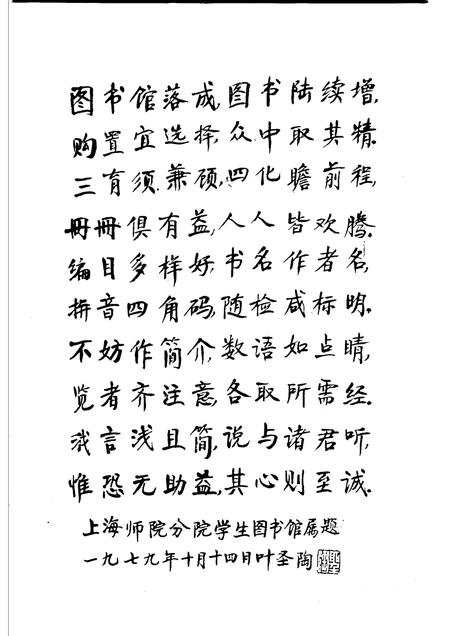 图书馆落成,图书陆续增,
购置宜选择,众中取其精.
三育须兼顾,四化瞻前程,
冊冊俱有益,人人皆欢腾.
编目多样好,书名作者名,
拼音四角码,随检咸标明.
不妨作简介,数语如点睛,
览者齐注意,各取所需经.
我言浅且简,说与诸君听,
惟恐无助益,其心则至诚.
上海师院分院学生图书馆属题
一九七九年十月十四日叶圣陶